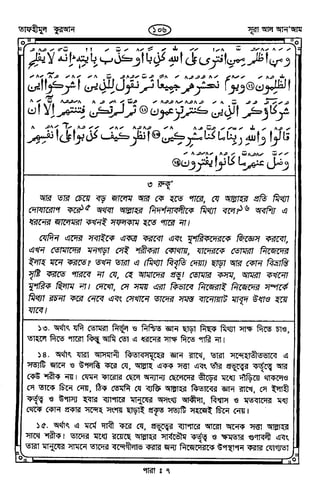 তাফহীমুল কুরআন
১০৬
সূরা আল আন'আম
وَمَنْ أَظْلَمُ مِمَّنِ افْتَرَىٰ عَلَى اللَّهِ كَذِبًا أَوْ كَذَّبَ بِآيَاتِهِ ۗ إِنَّهُ لَا يُفْلِحُ
الظَّالِمُونَ ۝ وَيَوْمَ نَحْشُرُهُمْ جَمِيعًا ثُمَّ نَقُولُ لِلَّذِينَ أَشْرَكُوا أَيْنَ
شُرَكَاؤُكُمُ الَّذِينَ كُنْتُمْ تَزْعُمُونَ ۝ ثُمَّ لَمْ تَكُنْ فِتْنَتُهُمْ إِلَّا أَنْ
قَالُوا وَاللَّهِ رَبِّنَا مَا كُنَّا مُشْرِكِينَ ۝ انْظُرْ كَيْفَ كَذَبُوا عَلَىٰ أَنْفُسِهِمْ
وَضَلَّ عَنْهُمْ مَا كَانُوا يَفْتَرُونَ ۝
৩ রুকূ'
আর তার চেয়ে বড় জালেম আর কে হতে পারে, যে আল্লাহর প্রতি মিথ্যা
দোষারোপ করে১৫ অথবা আল্লাহর নিদর্শনাবলীকে মিথ্যা বলে?১৬ অবশ্যি এ
ধরনের জালেমরা কখনই সফলকাম হতে পারে না।
যেদিন এদের সবাইকে একত্র করবো এবং মুশরিকদেরকে জিজ্ঞেস করবো,
এখন তোমাদের মনগড়া সেই শরীকরা কোথায়, যাদেরকে তোমরা নিজেদের
ইলাহ মনে করতে? তখন তারা এ (মিথ্যা বিবৃতি দেয়া) ছাড়া আর কোন বিভ্রান্তি
সৃষ্টি করতে পারবে না যে, হে আমাদের প্রভু! তোমার কসম, আমরা কখনো
মুশরিক ছিলাম না। দেখো, সে সময় এরা কিভাবে নিজেরাই নিজেদের সম্পর্কে
মিথ্যা রচনা করে নেবে এবং সেখানে তাদের সমস্ত বানোয়াট মাবুদ উধাও হয়ে
যাবে।
১৩. অর্থাৎ যদি তোমরা নির্ভুল ও নিশ্চিত জ্ঞান ছাড়া নিছক মিথ্যা সাক্ষ দিতে চাও,
তাহলে দিতে পারো কিন্তু আমি তো এ ধরনের সাক্ষ দিতে পারি না।
১৪. অর্থাৎ যারা আসমানী কিতাবসমূহের জ্ঞান রাখে, তারা সন্দেহাতীতভাবে এ
সত্যটি জানে ও উপলব্ধি করে যে, আল্লাহ একক সত্তা এবং তাঁর প্রভুত্বের কর্তৃত্বে আর
কেউ শরীক নয়। যেমন কারোর ছেলে অন্যান্য ছেলেদের ভীড়ের মধ্যে দাঁড়িয়ে থাকলেও
সে তাকে চিনে নেয়, ঠিক তেমনি যে ব্যক্তি আল্লাহর কিতাবের জ্ঞান রাখে, সে ইলাহী
কর্তৃত্ব ও উপাস্য হবার ব্যাপারে মানুষের অসংখ্য আকীদা, বিশ্বাস ও মতবাদের মধ্য
থেকে কোন প্রকার সন্দেহ সংশয় ছাড়াই প্রকৃত সত্যটি সহজেই চিনে নেয়।
১৫. অর্থাৎ এ মর্মে দাবী করে যে, প্রভুত্বের ব্যাপারে আরো অনেক সত্তা আল্লাহর
সাথে শরীক। তাদের মধ্যে রয়েছে আল্লাহর সার্বভৌম কর্তৃত্ব ও ক্ষমতার গুণাবলী এবং
তারা মানুষের সামনে তাদের বন্দেগীলাভ করার জন্য নিজেদেরকে উপস্থাপন করার যোগ্যতা
পারা : ৭